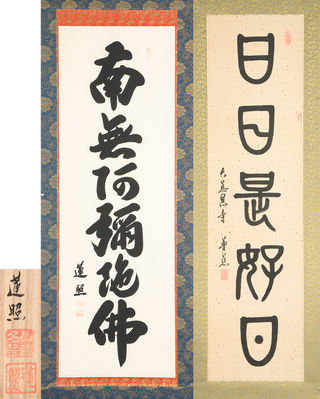 南無阿彌陀佛
蓮照
日日是好日
大慈恩寺
蓮照